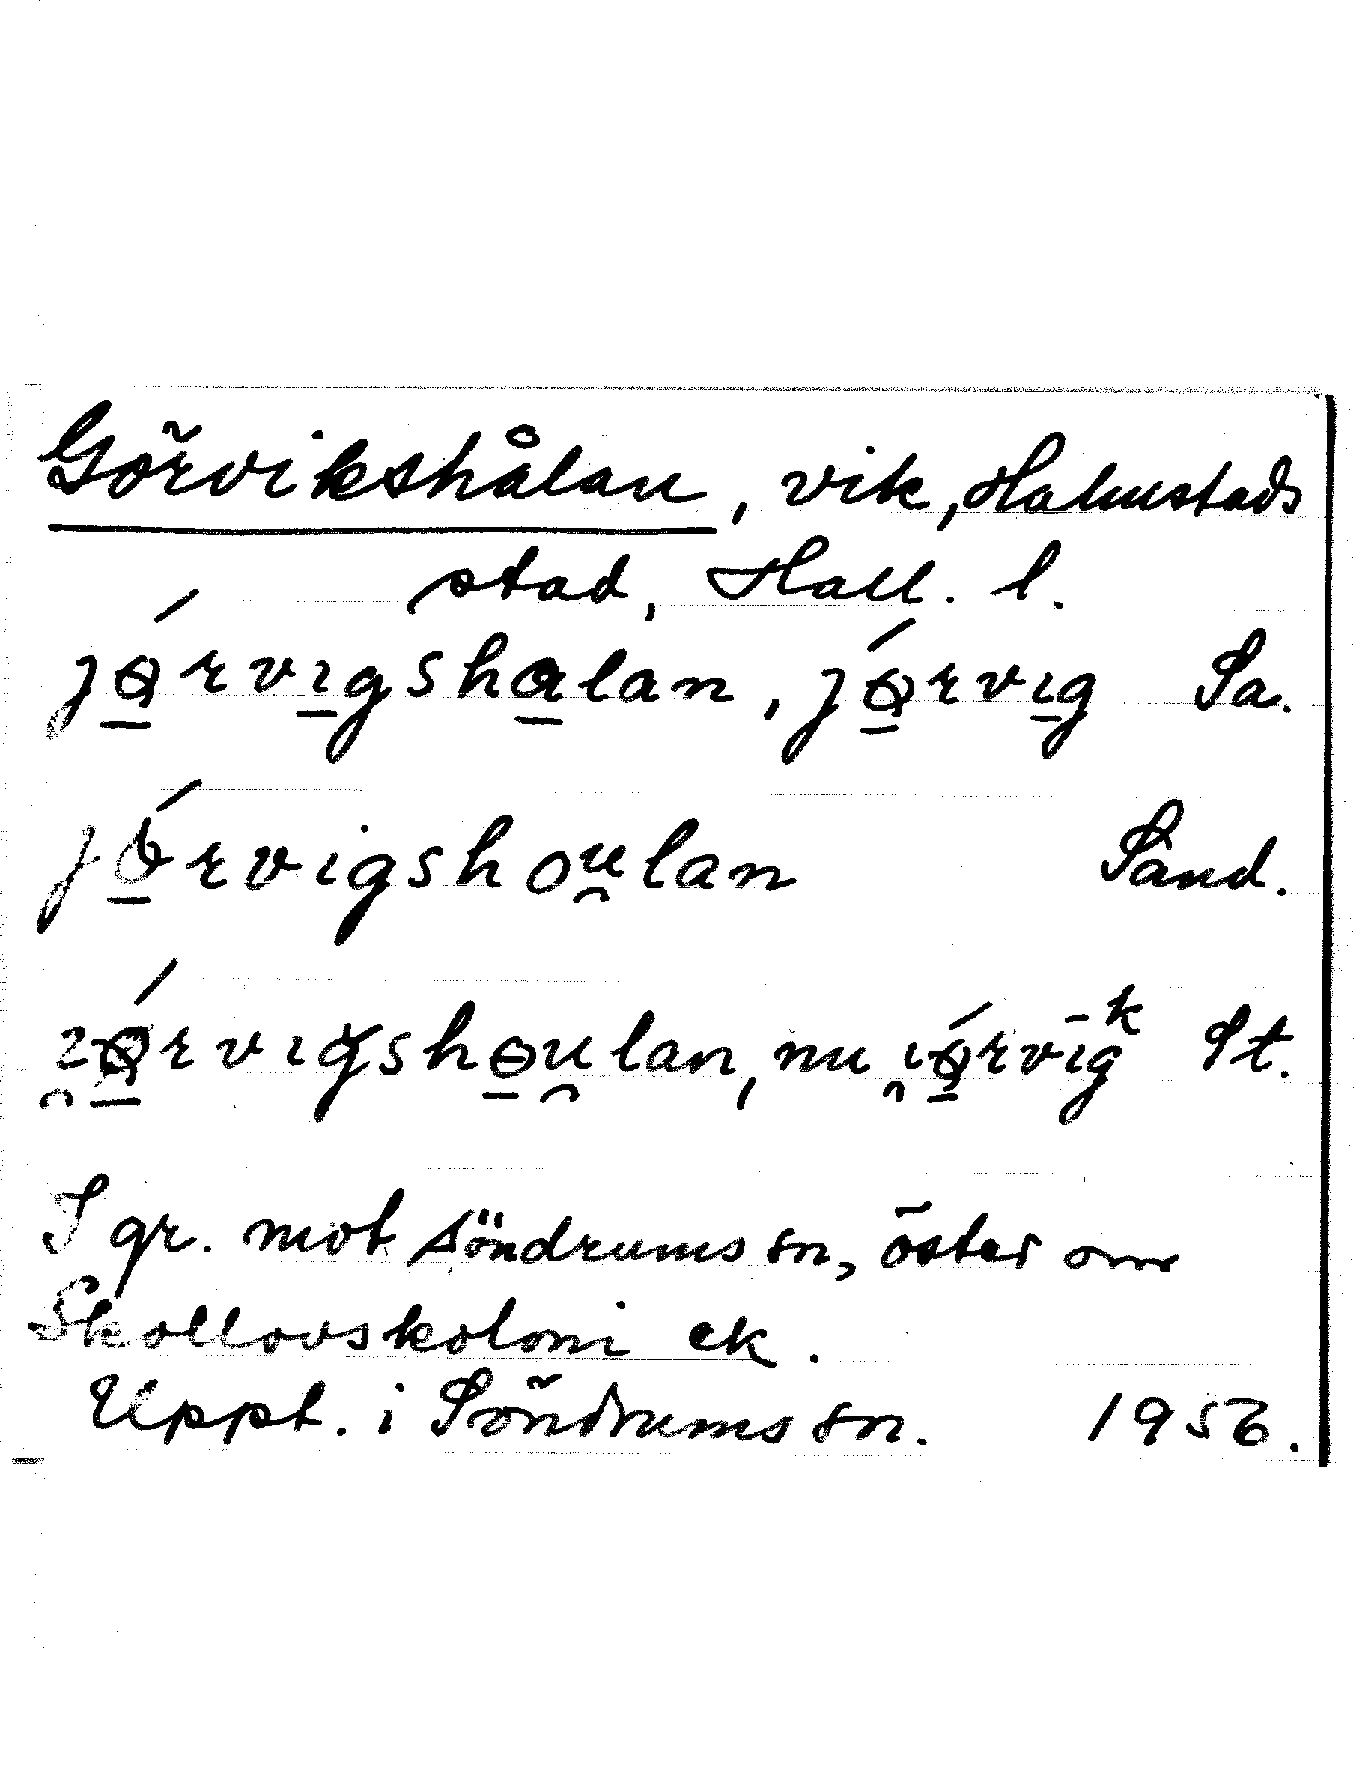 Görvikshålan, vik, Halmstads
stad, Hall. l.
jørvıgshalan, jørvıg Sa.
jørvigshou̯lan Sand.
ı̯ørvıgshɵu̯lan, nu ı̯ørvīg k St.
I gr. mot Söndrums sn, öster om
Skollovskoloni ek.
Uppt. i Söndrums sn. 1956.